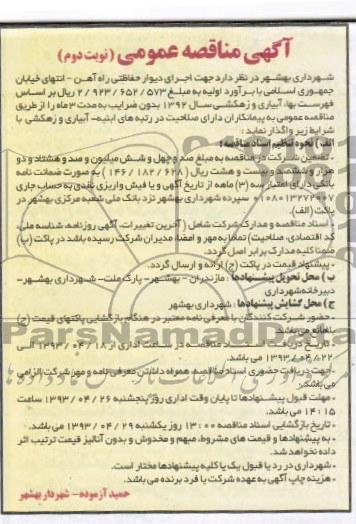 آگهی مناقصه عمومی (نوبت دوم)
شهرداری بهشهر در نظر دارد جهت اجرای دیوار حفاظتی راه آهن - انتهای خیابان
جمهوری اسلامی با برآورد اولیه به مبلغ ۲/۹۲۳/۶۵۲/۵۷۳ ریال بر اساس
فهرست بها، آبیاری و زهکشی سال ۱۳۹۲ بدون ضرایب به مدت ۳ ماه را از طریق
مناقصه عمومی به پیمانکاران دارای صلاحیت در رتبه های ابنیه- آبیاری و زهکشی با
شرایط زیر واگذار نماید:
الف) نحوه تنظیم اسناد مناقصه:
- تضمین شرکت در مناقصه به مبلغ صد و چهل و شش میلیون و صد و هشتاد و دو
هزار و ششصد و بیست و هشت ریال (۱۴۶/۱۸۲/۶۲۸) به صورت ضمانت نامه
بانکی دارای اعتبار سه (۳) ماهه از تاریخ آگهی و یا فیش واریزی نقدی به حساب جاری
۰۱۰۸۰۱۳۲۷۲۰۰۷ سپرده شهرداری بهشهر نزد بانک ملی شعبه مرکزی بهشهر در
پاکت (الف).
- اسناد مناقصه و مدارک شرکت شامل (آخرین تغییرات، آگهی روزنامه، شناسه ملی،
کد اقتصادی، صلاحیت) تماما به مهر و امضاء مدیران شرکت رسیده باشد در پاکت (ب)
ضمنا کلیه مدارک برابر اصل گردد.
- پیشنهاد قیمت در پاکت (ج) ارائه و ارسال گردد.
ب) محل تحویل پیشنهادها: مازندران - بهشهر- پارک ملت- شهرداری بهشهر-
دبیرخانه شهرداری
ج) محل گشایش پیشنهادها: شهرداری بهشهر
- حضور شرکت کنندگان با معرفی نامه معتبر در هنگام بازگشایی پاکتهای قیمت (ج)
بلامانع می باشد.
- تاریخ دریافت اسناد مناقصه در ساعت اداری از ۱۳۹۳/۰۴/۱۸ الی
۱۳۹۳/۰۴/۲۲ می باشد.
- جهت دریافت حضوری اسناد مناقصه، همراه داشتن معرفی نامه و مهر شرکت الزامی
می باشد.
- مهلت قبول پیشنهادها تا پایان وقت اداری روز پنجشنبه ۱۳۹۳/۰۴/۲۶ ساعت
۱۴:۱۵ می باشد.
- تاریخ بازگشایی اسناد مناقصه ۱۳:۰۰ روز یکشنبه ۱۳۹۳/۰۴/۲۹ می باشد.
- به پیشنهادها و قیمت های مشروط، مبهم و مخدوش و بدون آنالیز قیمت ترتیب اثر
داده نخواهد شد.
- شهرداری در رد یا قبول یک یا کلیه پیشنهادها مختار است.
- هزینه چاپ آگهی به عهده شرکت یا فرد برنده می باشد.
حمید آزموده - شهردار بهشهر
ParsNamadData